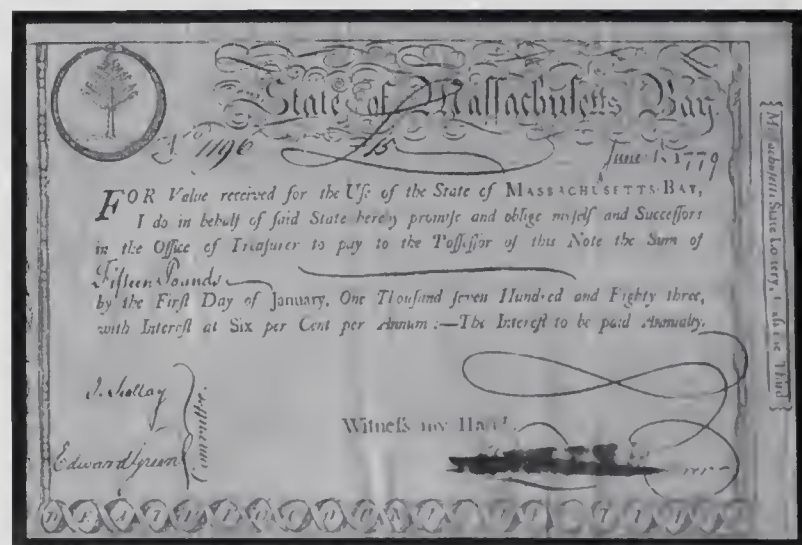 State of Massachusetts Bay.
No 1196 £15 June 1. 1779
FOR Value received for the Uſe of the State of MASSACHUSETTS-BAY,
I do in behalf of ſaid State hereby promiſe and oblige myſelf and Succeſſors
in the Office of Treaſurer to pay to the Poſſeſſor of this Note the Sum of
Fifteen Pounds
by the Firſt Day of January, One Thouſand ſeven Hundred and Eighty three,
with Intereſt at Six per Cent per Annum:—The Intereſt to be paid Annually.
Edward Green
Committee.
Witneſs my Hand.
Maſſachuſetts State Lottery, Claſs the Third